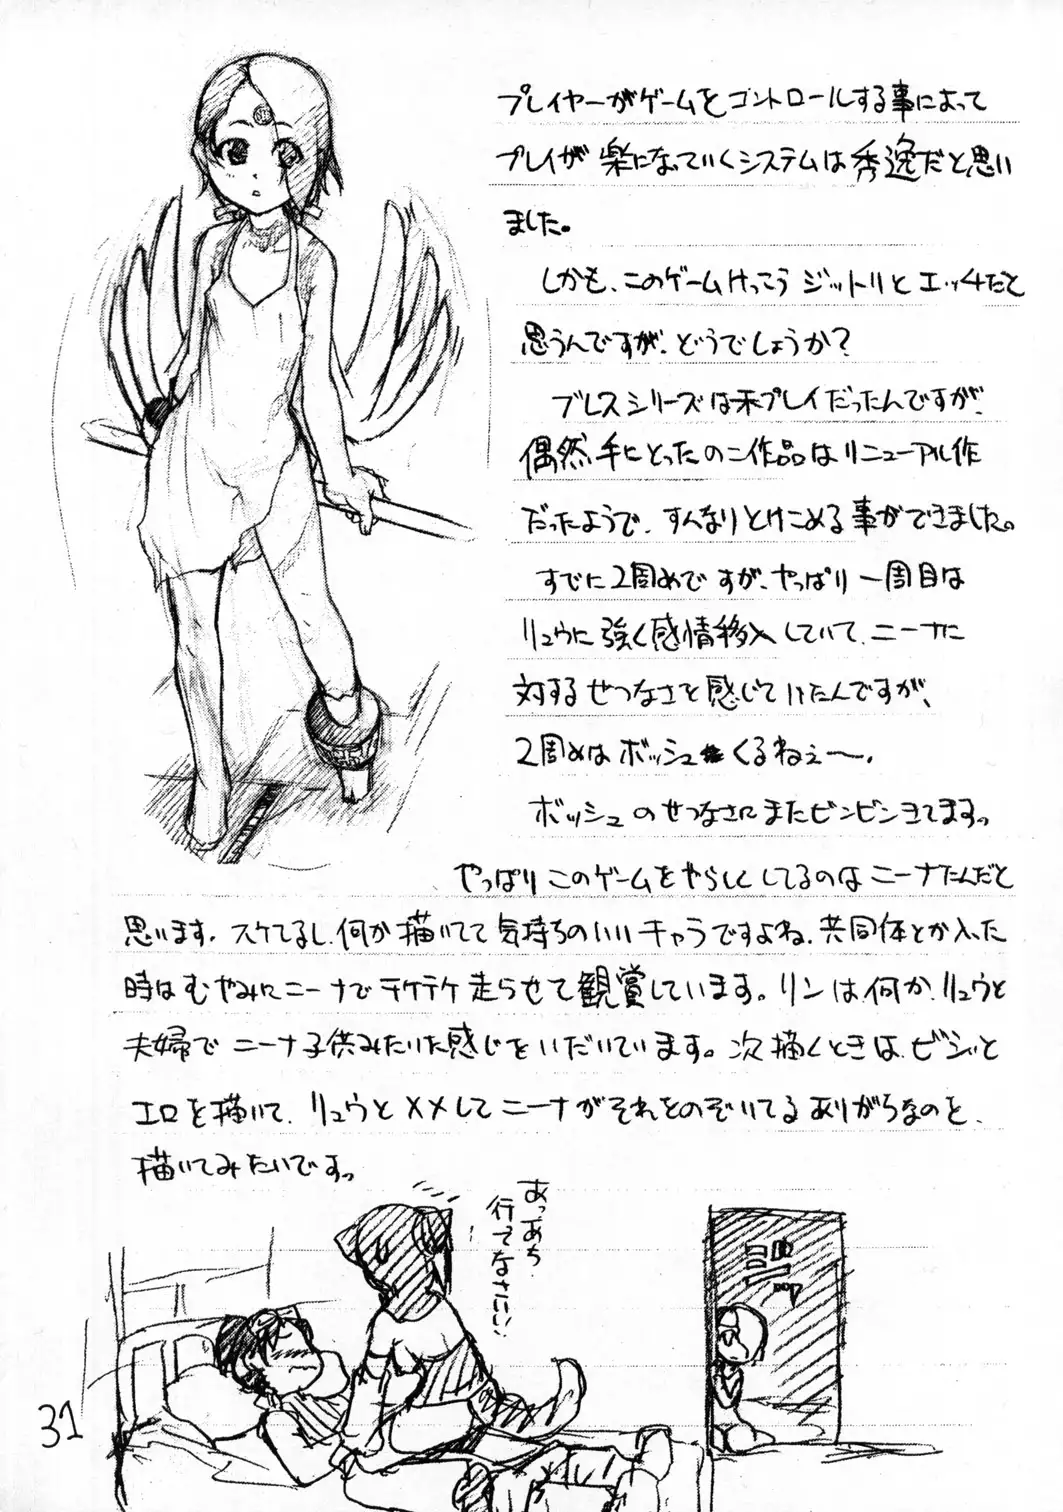 プレイヤーがゲームをコントロールする事によって
プレイが楽になっていくシステムは秀逸だと思い
ました。
しかも、このゲームけっこうジットリとエッチだと
思うんですが、どうでしょうか?
ブレスシリーズは未プレイだったんですが、
偶然手にとったのこ作品はリニューアル作
だったようで、すんなりとけこめる事ができました。
すでに2周めですが、やっぱり一周目は
リュウに強く感情移入していて、ニーナに
対するせつなさを感じていたんですが、
2周めはボッシュくるねぇ〜。
ボッシュのせつなさにまたビンビンきてます。
やっぱりこのゲームをやらしくしてるのはニーナなんだと
思います。スケてるし、何か描いてて気持ちのいいキャラですよね。共同体とか入った
時はむやみにニーナでテケテケ走らせて観賞しています。リンは何か、リュウと
夫婦でニーナ子供みたいな感じをいだいています。次描くときは、ビシッと
エロを描いて、リュウと××してニーナがそれをのぞいてるありがちなのを、
描いてみたいですっ
あっあち
行てなさい!
31